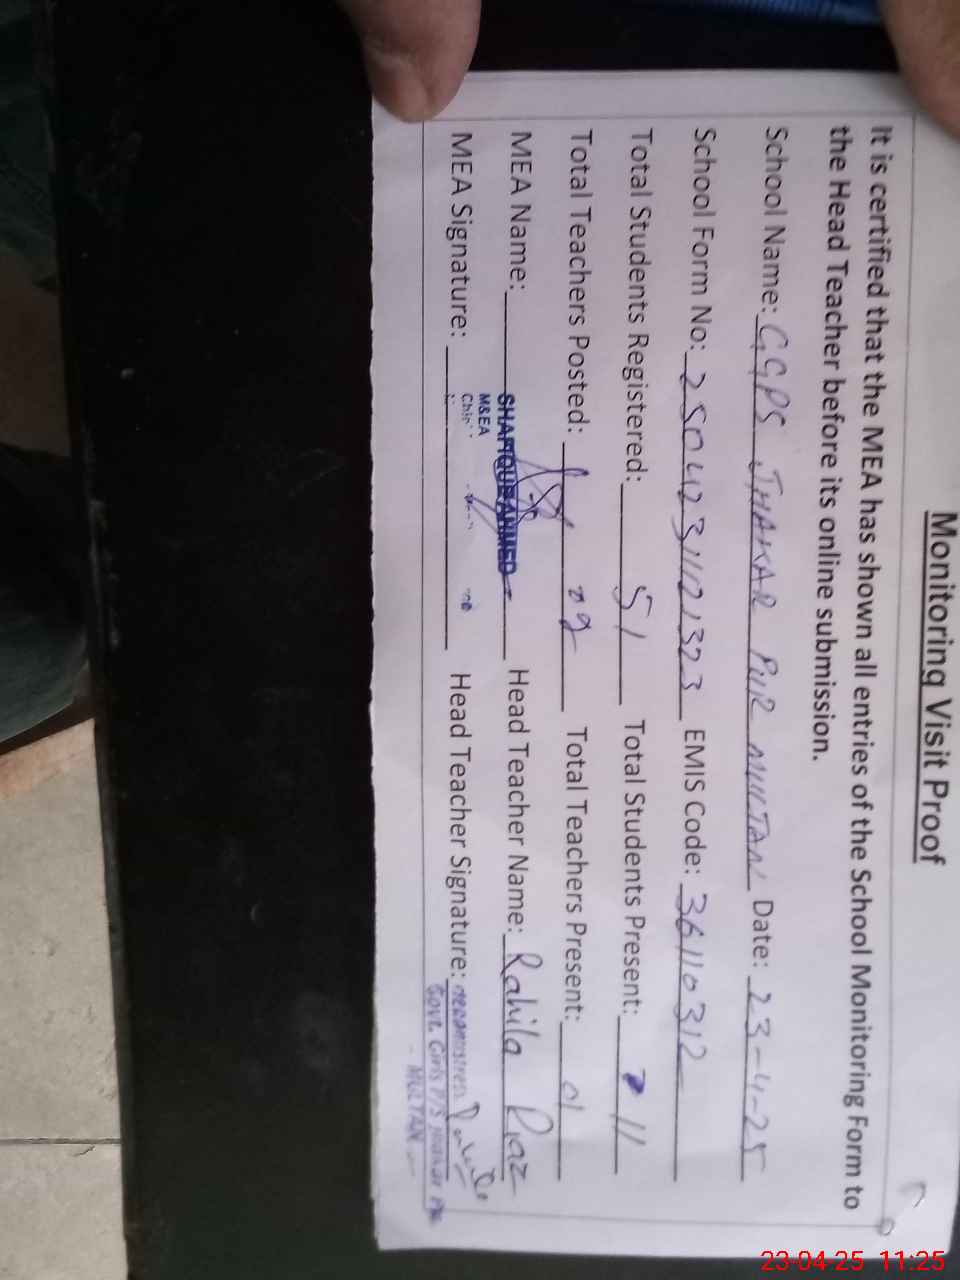 Monitoring Visit Proof
It is certified that the MEA has shown all entries of the School Monitoring Form to
the Head Teacher before its online submission.
School Name: GGPS JHAKAR PUR MULTAN Date: 23-4-25
School Form No: 25042311021323 EMIS Code: 36110312
Total Students Registered: 51 Total Students Present: 11
Total Teachers Posted: 02 Total Teachers Present: 01
MEA Name: SHAFIQUE AHMED Head Teacher Name: Rahila Riaz
M&EA
MEA Signature: Head Teacher Signature:
Govt. Girls P/S
MULTAN
23-04-25 11:25